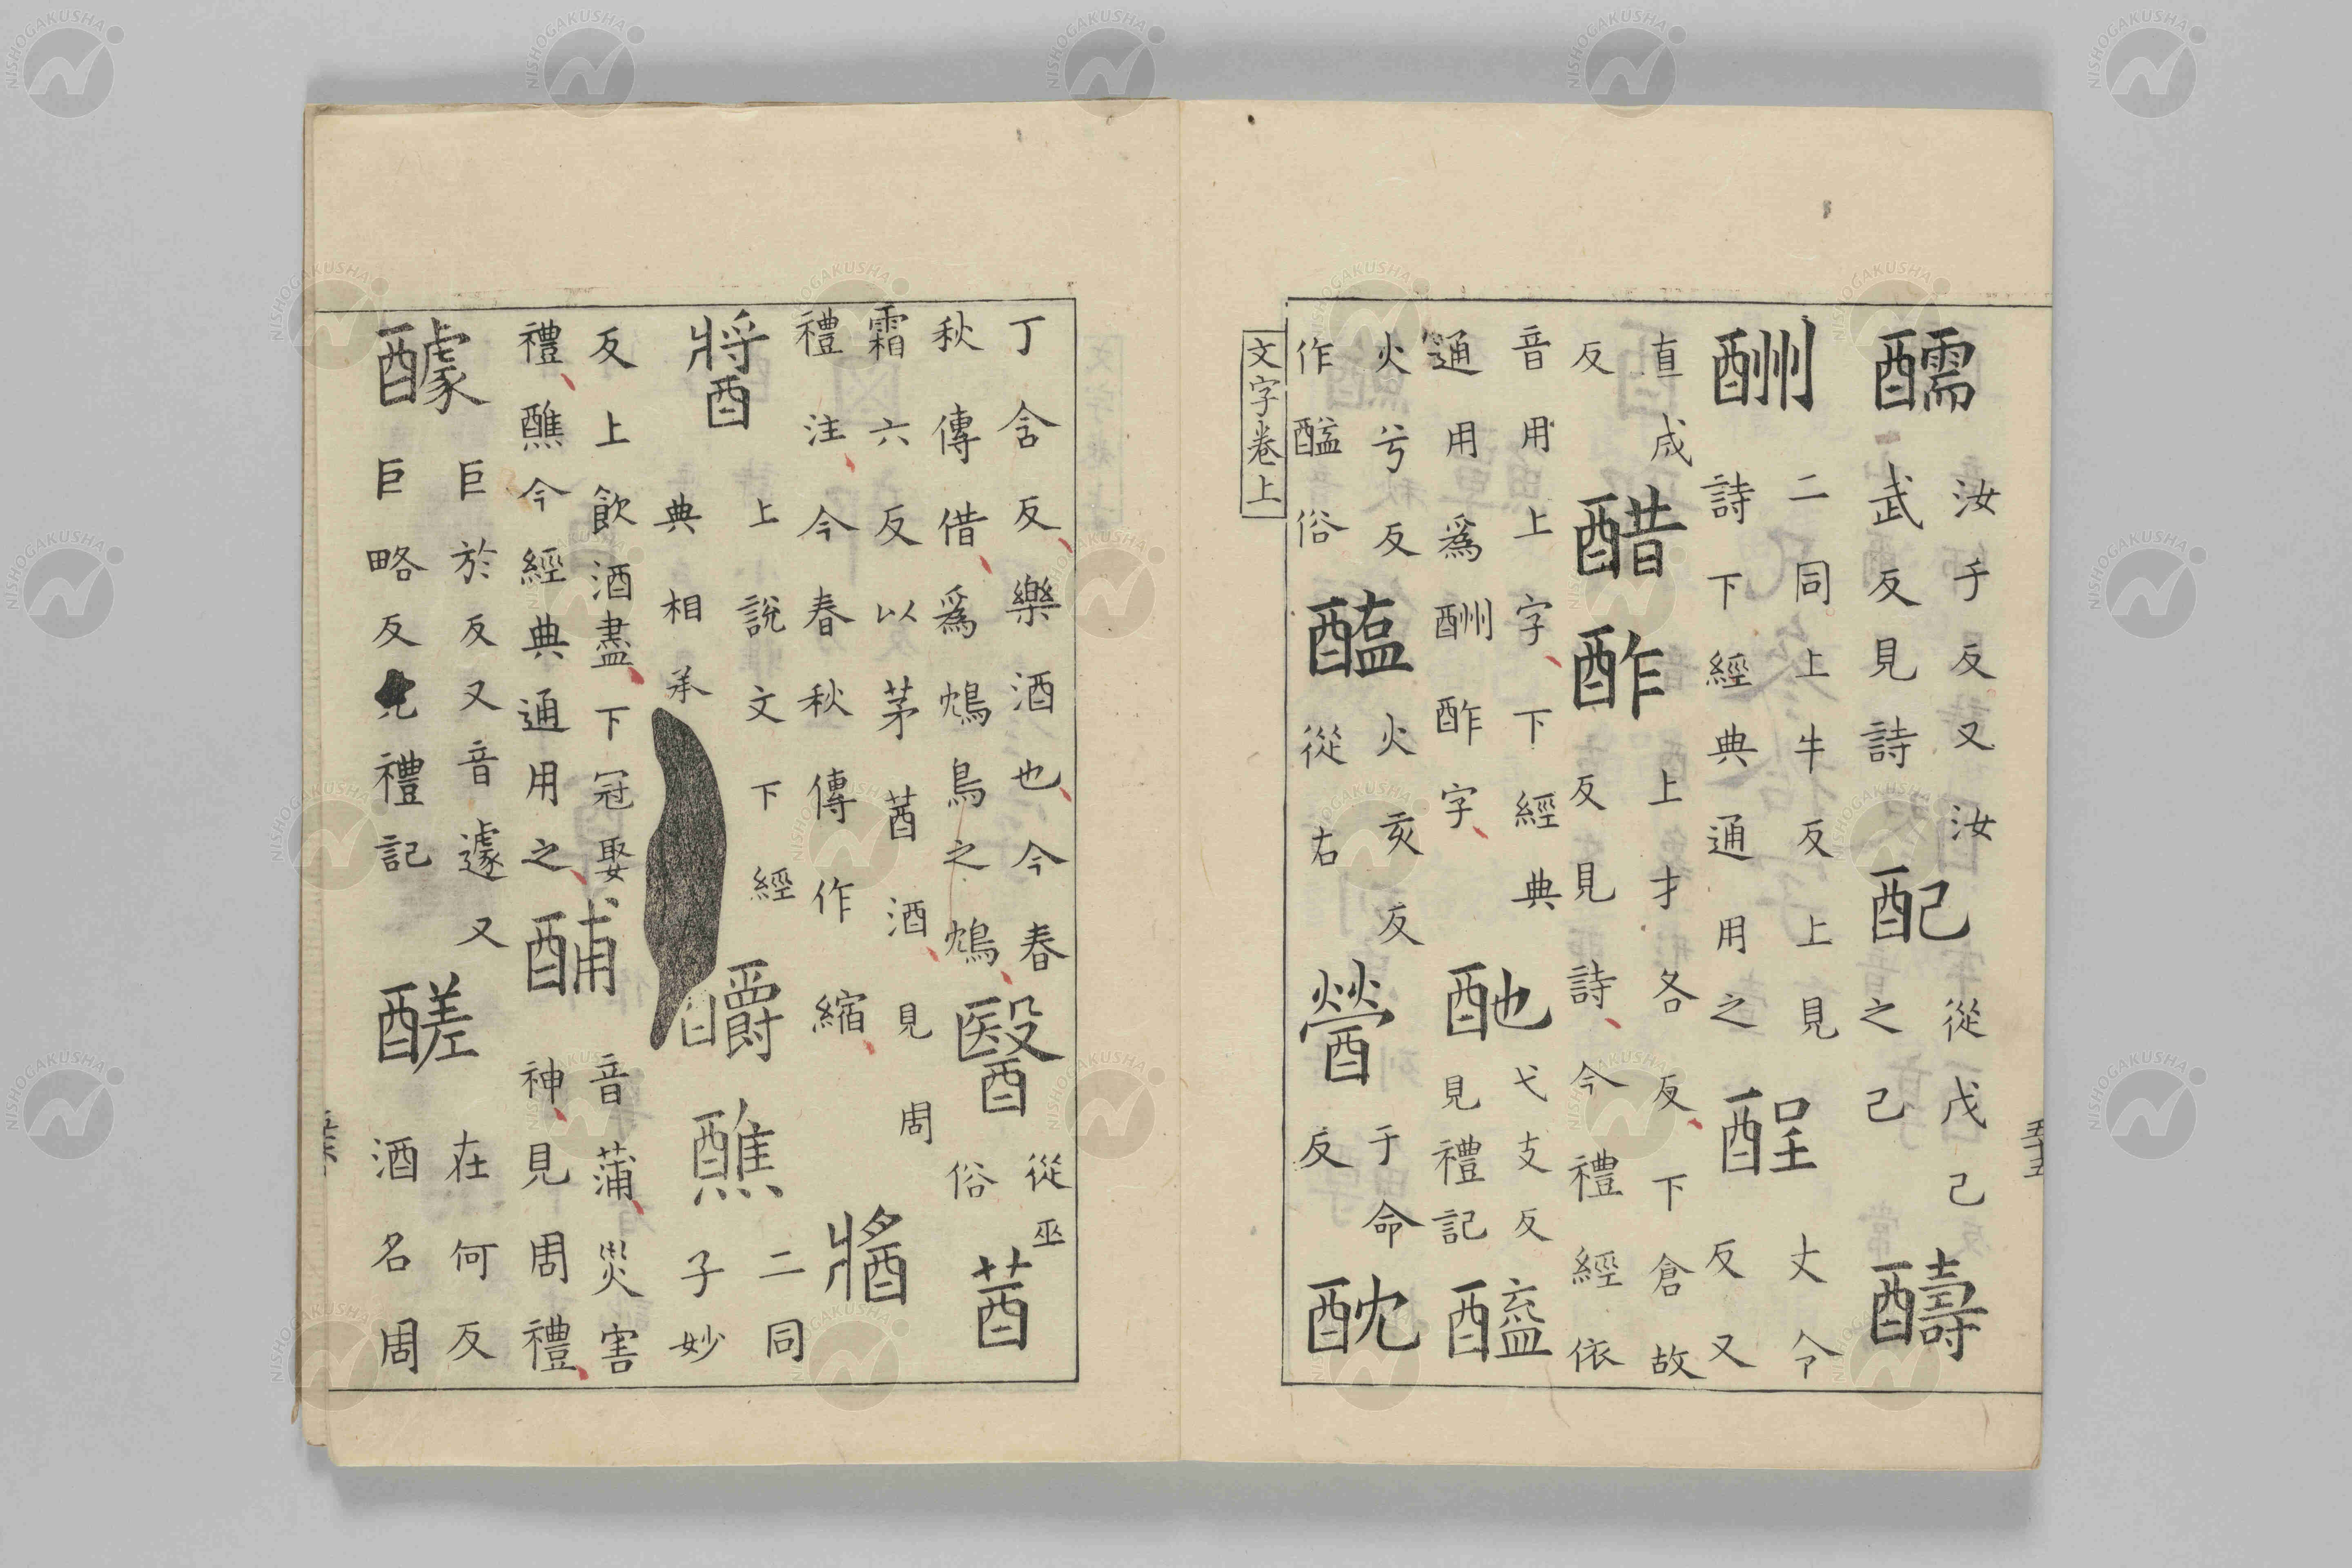 醹 汝手反又汝
武反見詩
配 從戊己
之己
醻
酬 二同上牛反上見
詩下經典通用之
酲 丈令
反又
直成
反
醋酢 上才各反下倉故
反見詩今禮經依
音用上字下經典
通用爲酬酢字
酏 弋支反
見禮記
醯
火兮反
作醯俗
醢 火亥反
從右
醟 于命
反
酖
文字卷上
五十五
丁含反樂酒也今春
秋傳借爲鴆鳥之鴆
醫 從巫
俗
莤
霜六反以茅莤酒見周
禮注今春秋傳作縮
醬
醬 上說文下經
典相承
釂醮 二同
子妙
反上飲酒盡下冠娶
禮醮今經典通用之
酺 音蒲災害
神見周禮
醵 巨於反又音遽又
巨略反見禮記
醝 在何反
酒名周